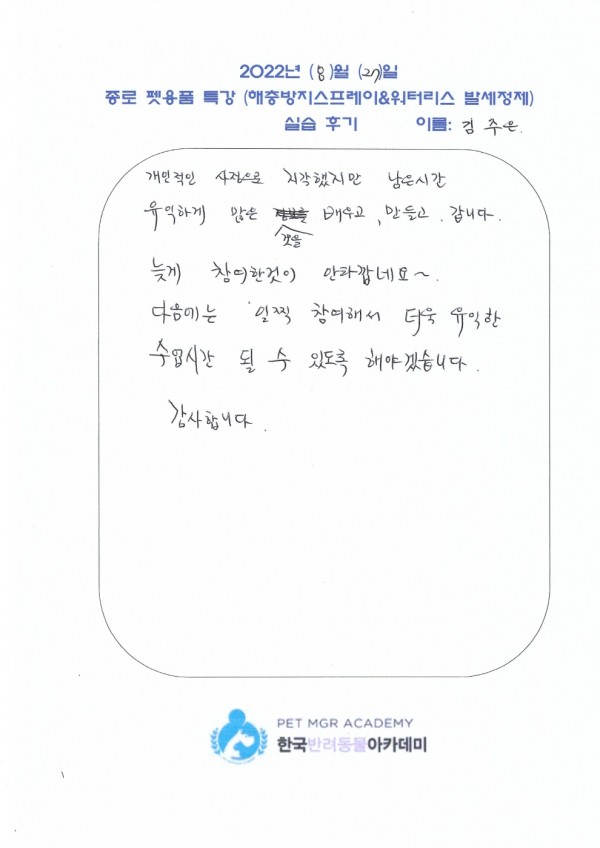 2022년 (8)월 (27)일
종로 펫용품 특강 (해충방지스프레이&워터리스 발세정제)
실습 후기 이름: 김주은.
개인적인 사정으로 지각했지만 남은시간
유익하게 많은 것을 배우고, 만들고. 갑니다.
늦게 참여한것이 안타깝네요~.
다음에는 일찍 참여해서 더욱 유익한
수업시간 될 수 있도록 해야겠습니다.
감사합니다.
PET MGR ACADEMY
한국반려동물아카데미